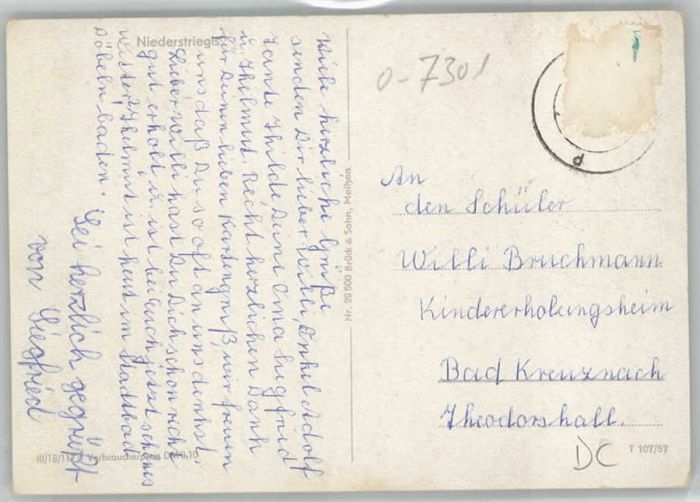 Niederstriegis
Viele herzliche Grüße
senden Dir lieber Willi Onkel Adolf
Tante Hilde Heini Siegfried
u. Helmut. Recht herzlichen Dank
für Deinen lieben Kartengruß wir freuen
uns daß Du so oft an uns denkst.
Lieber Willi hast Du Dich schon recht
gut erholt u. ist bei Euch jetzt schönes
Wetter, Helmut ist heut im Stadtbad
Döbeln baden.
Sei herzlich gegrüßt
von Siegfried
III/18/117 Verbraucherpreis DM 0,10
Nr. 29 500 Brück & Sohn, Meißen
0-7301
d
An
den Schüler
Willi Bruchmann
Kindererholungsheim
Bad Kreuznach
Theodorshall.
DC
T 107/57